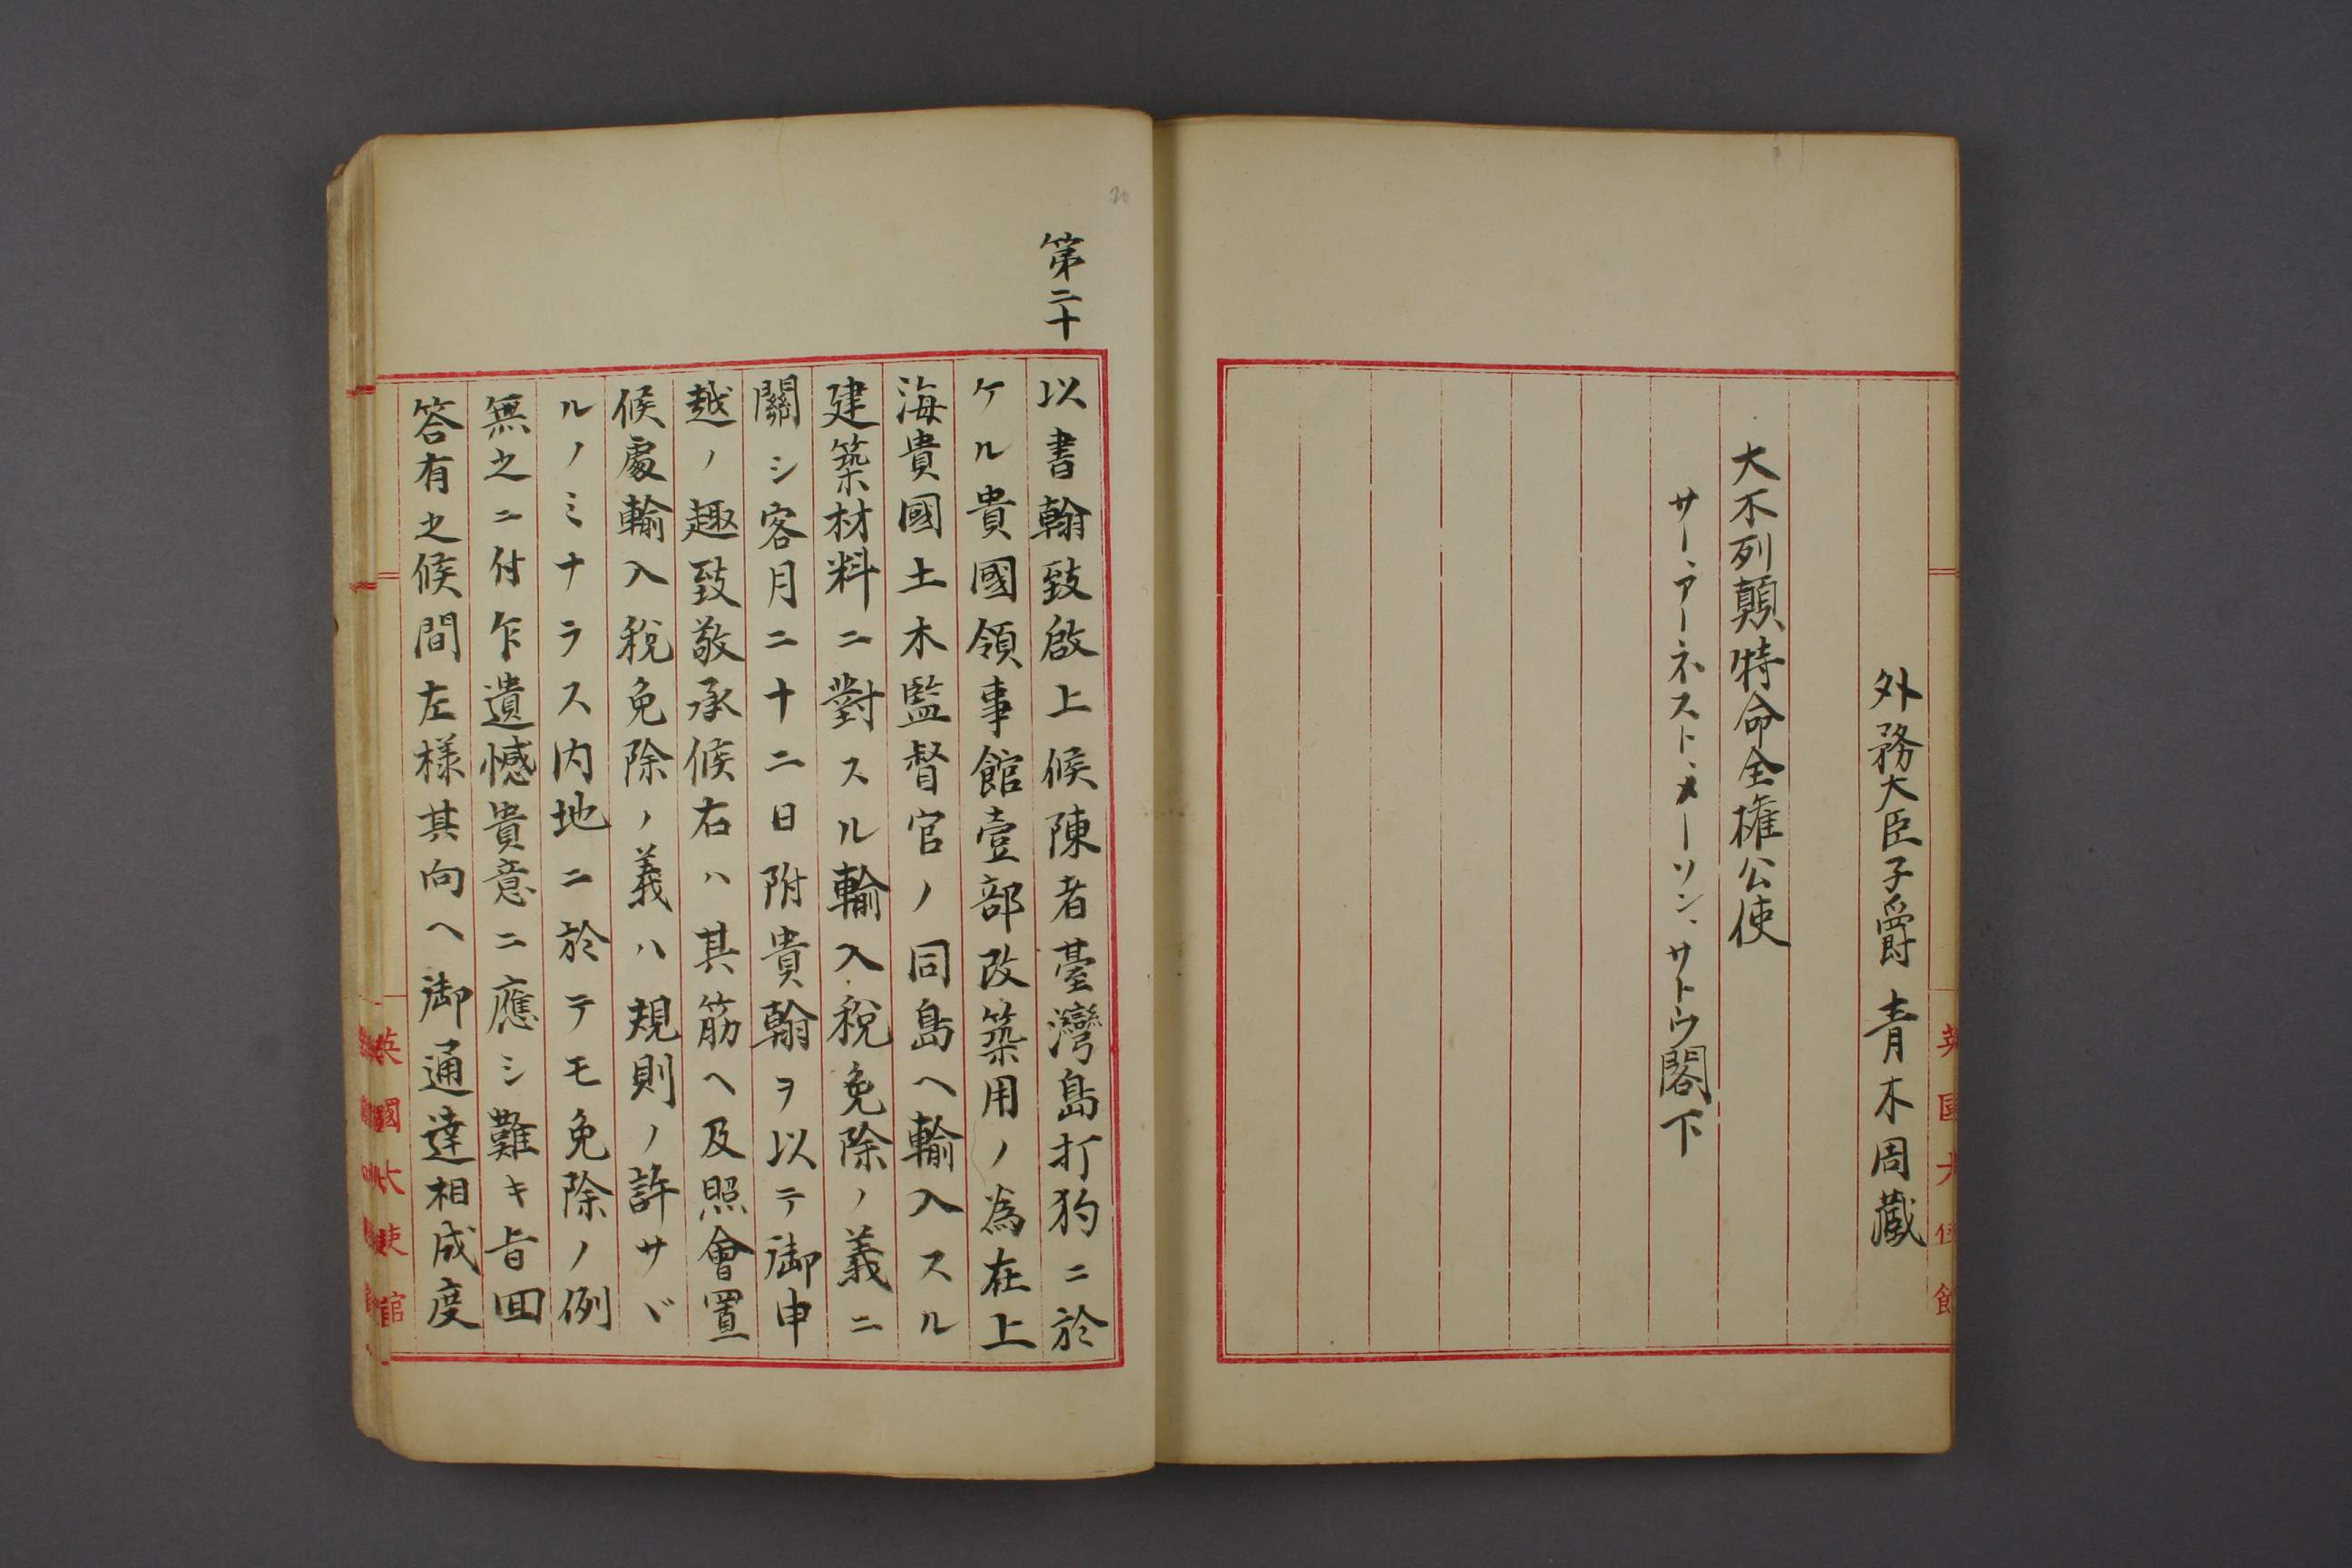 外務大臣子爵 青木周藏
大不列顛特命全権公使
サー、アーネスト、メーソン、サトウ閣下
英國大使館
20
第二十
以書翰致啟上候陳者臺灣島打狗ニ於
ケル貴國領事館壹部改築用ノ為在上
海貴國土木監督官ノ同島へ輸入スル
建築材料ニ對スル輸入税免除ノ義ニ
關シ客月二十二日附貴翰ヲ以テ御申
越ノ趣致敬承候右ハ其筋へ及照會置
候處輸入税免除ノ義ハ規則ノ許サヾ
ルノミナラス内地ニ於テモ免除ノ例
無之ニ付乍遺憾貴意ニ應シ難キ旨回
答有之候間左様其向へ御通達相成度
英國大使館